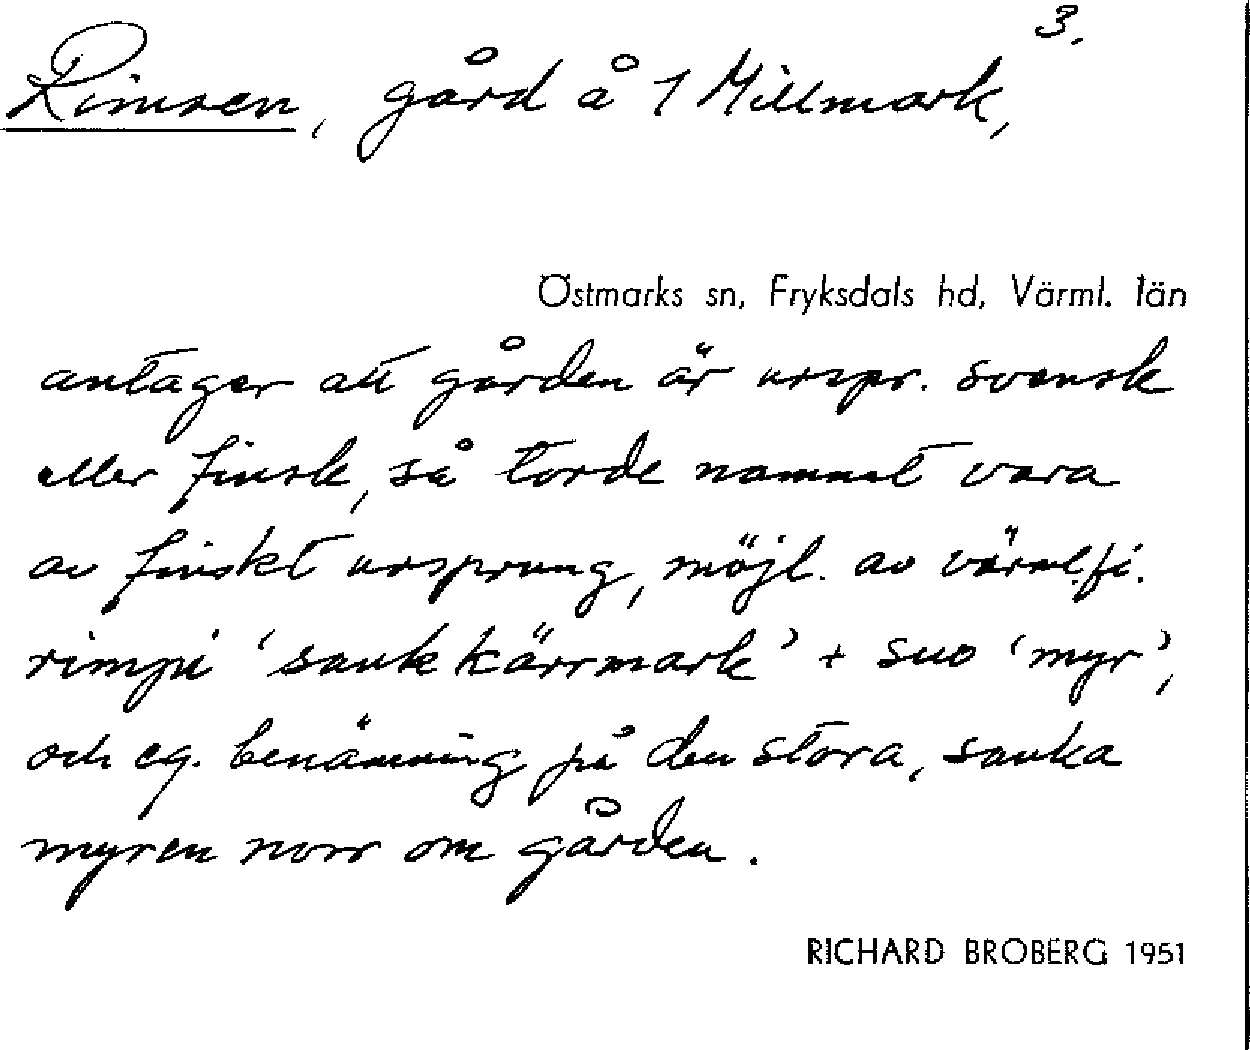 3.
Rimsen, gård å 1 Millmark,
Östmarks sn, Fryksdals hd, Värml. län
antager att gården är urspr. svensk
eller finsk, så torde namnet vara
av finskt ursprung, möjl. av värml.fi.
rimpi ‘sank kärrmark’ + suo ‘myr’,
och eg. benämning på den stora, sanka
myren norr om gården.
RICHARD BROBERG 1951